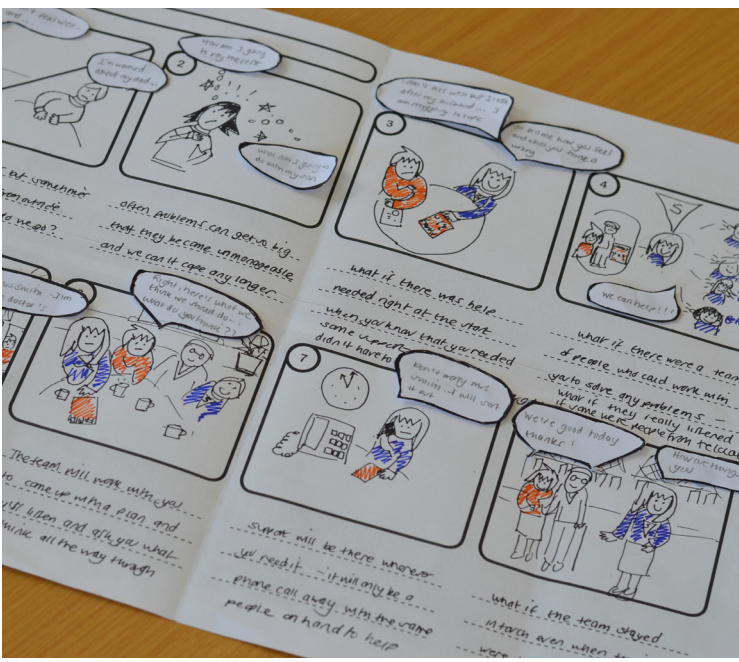 I'm worried
about my dad..
2
How am I going
to pay the rent
what am I going to
do with my mum
often problems can get so big
that they become unmanageable
and we can't cope any longer
but somehow
do we go?
3
I can't feel well but I look
after my husband.... I
am struggling to cope
so tell me how you feel
and what you think is
wrong
what if there was help
needed right at the start
when you know that you needed
some support
didn't have to
4
S
we can help!!!
what if there were a team
of people who could work with
you to solve any problems –
what if they really listened
if some were people from
Smith - I'm
doctor!!
Right, here's what we
think we should do...
what do you think??
The team will work with you
to come up with a plan and
listen and ask you what
think all the way through
7
N
Don't worry Mrs
Smith - I will sort
it out
support will be there wherever
you need it – it will only be a
phone call away with the same
people on hand to help
We're good today
thanks!
How are things
you
what if the team stayed
in touch even when
were